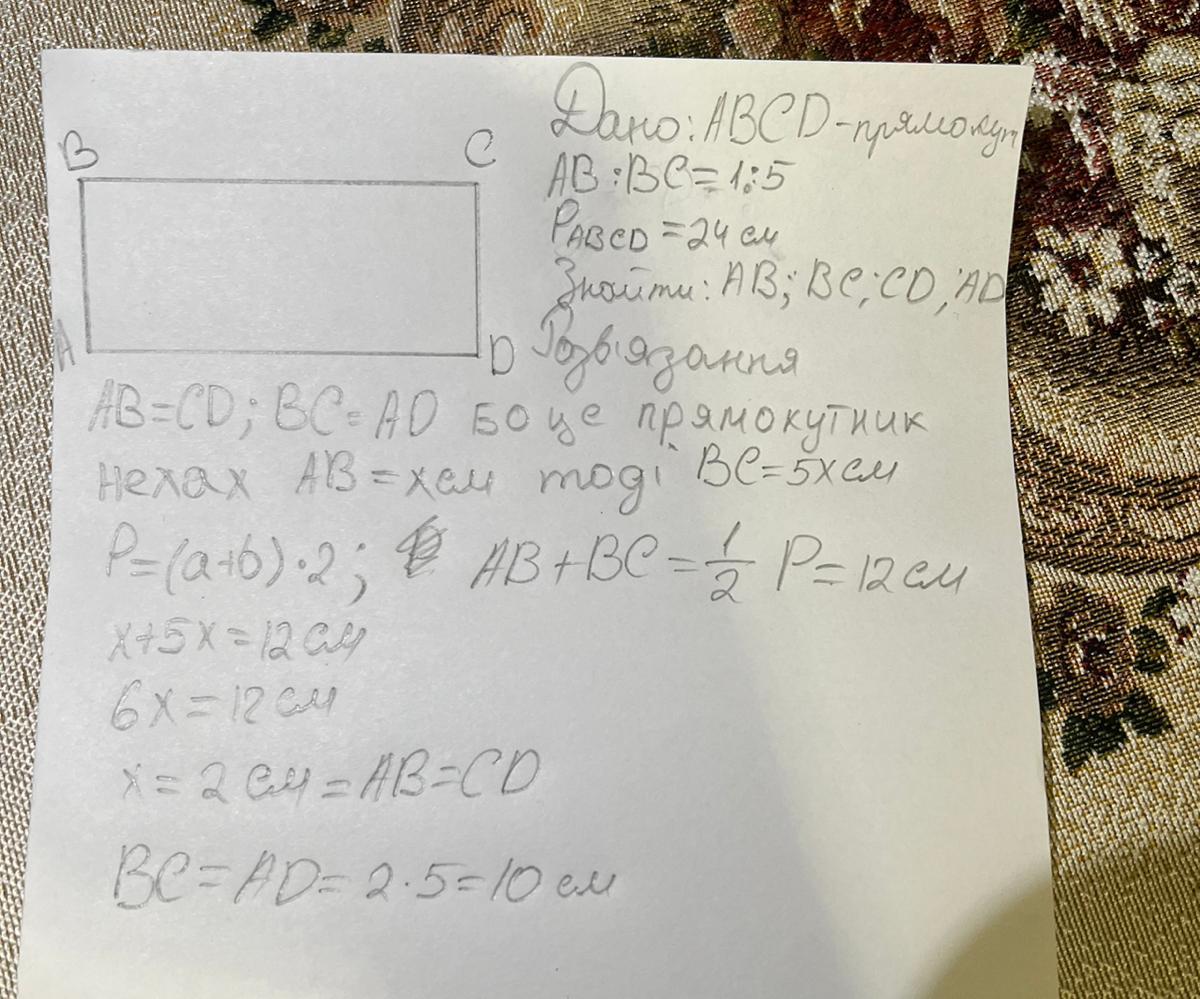 B
C
A
D
Дано: ABCD-прямокут
AB:BC=1:5
PABCD=24 см
Знайти: AB; BC; CD; AD
Розв'язання
AB=CD; BC=AD бо це прямокутник
нехах AB=x см тоді BC=5x см
P=(a+b)·2; AB+BC=1/2 P=12 см
x+5x=12 см
6x=12 см
x=2 см=AB=CD
BC=AD=2·5=10 см